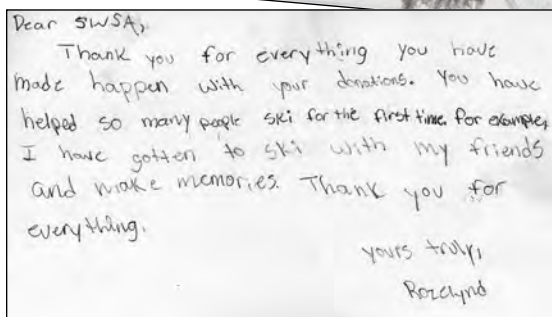 Dear SWSA,
Thank you for everything you have
made happen with your donations. You have
helped so many people ski for the first time. for example,
I have gotten to ski with my friends
and make memories. Thank you for
everything.
yours truly,